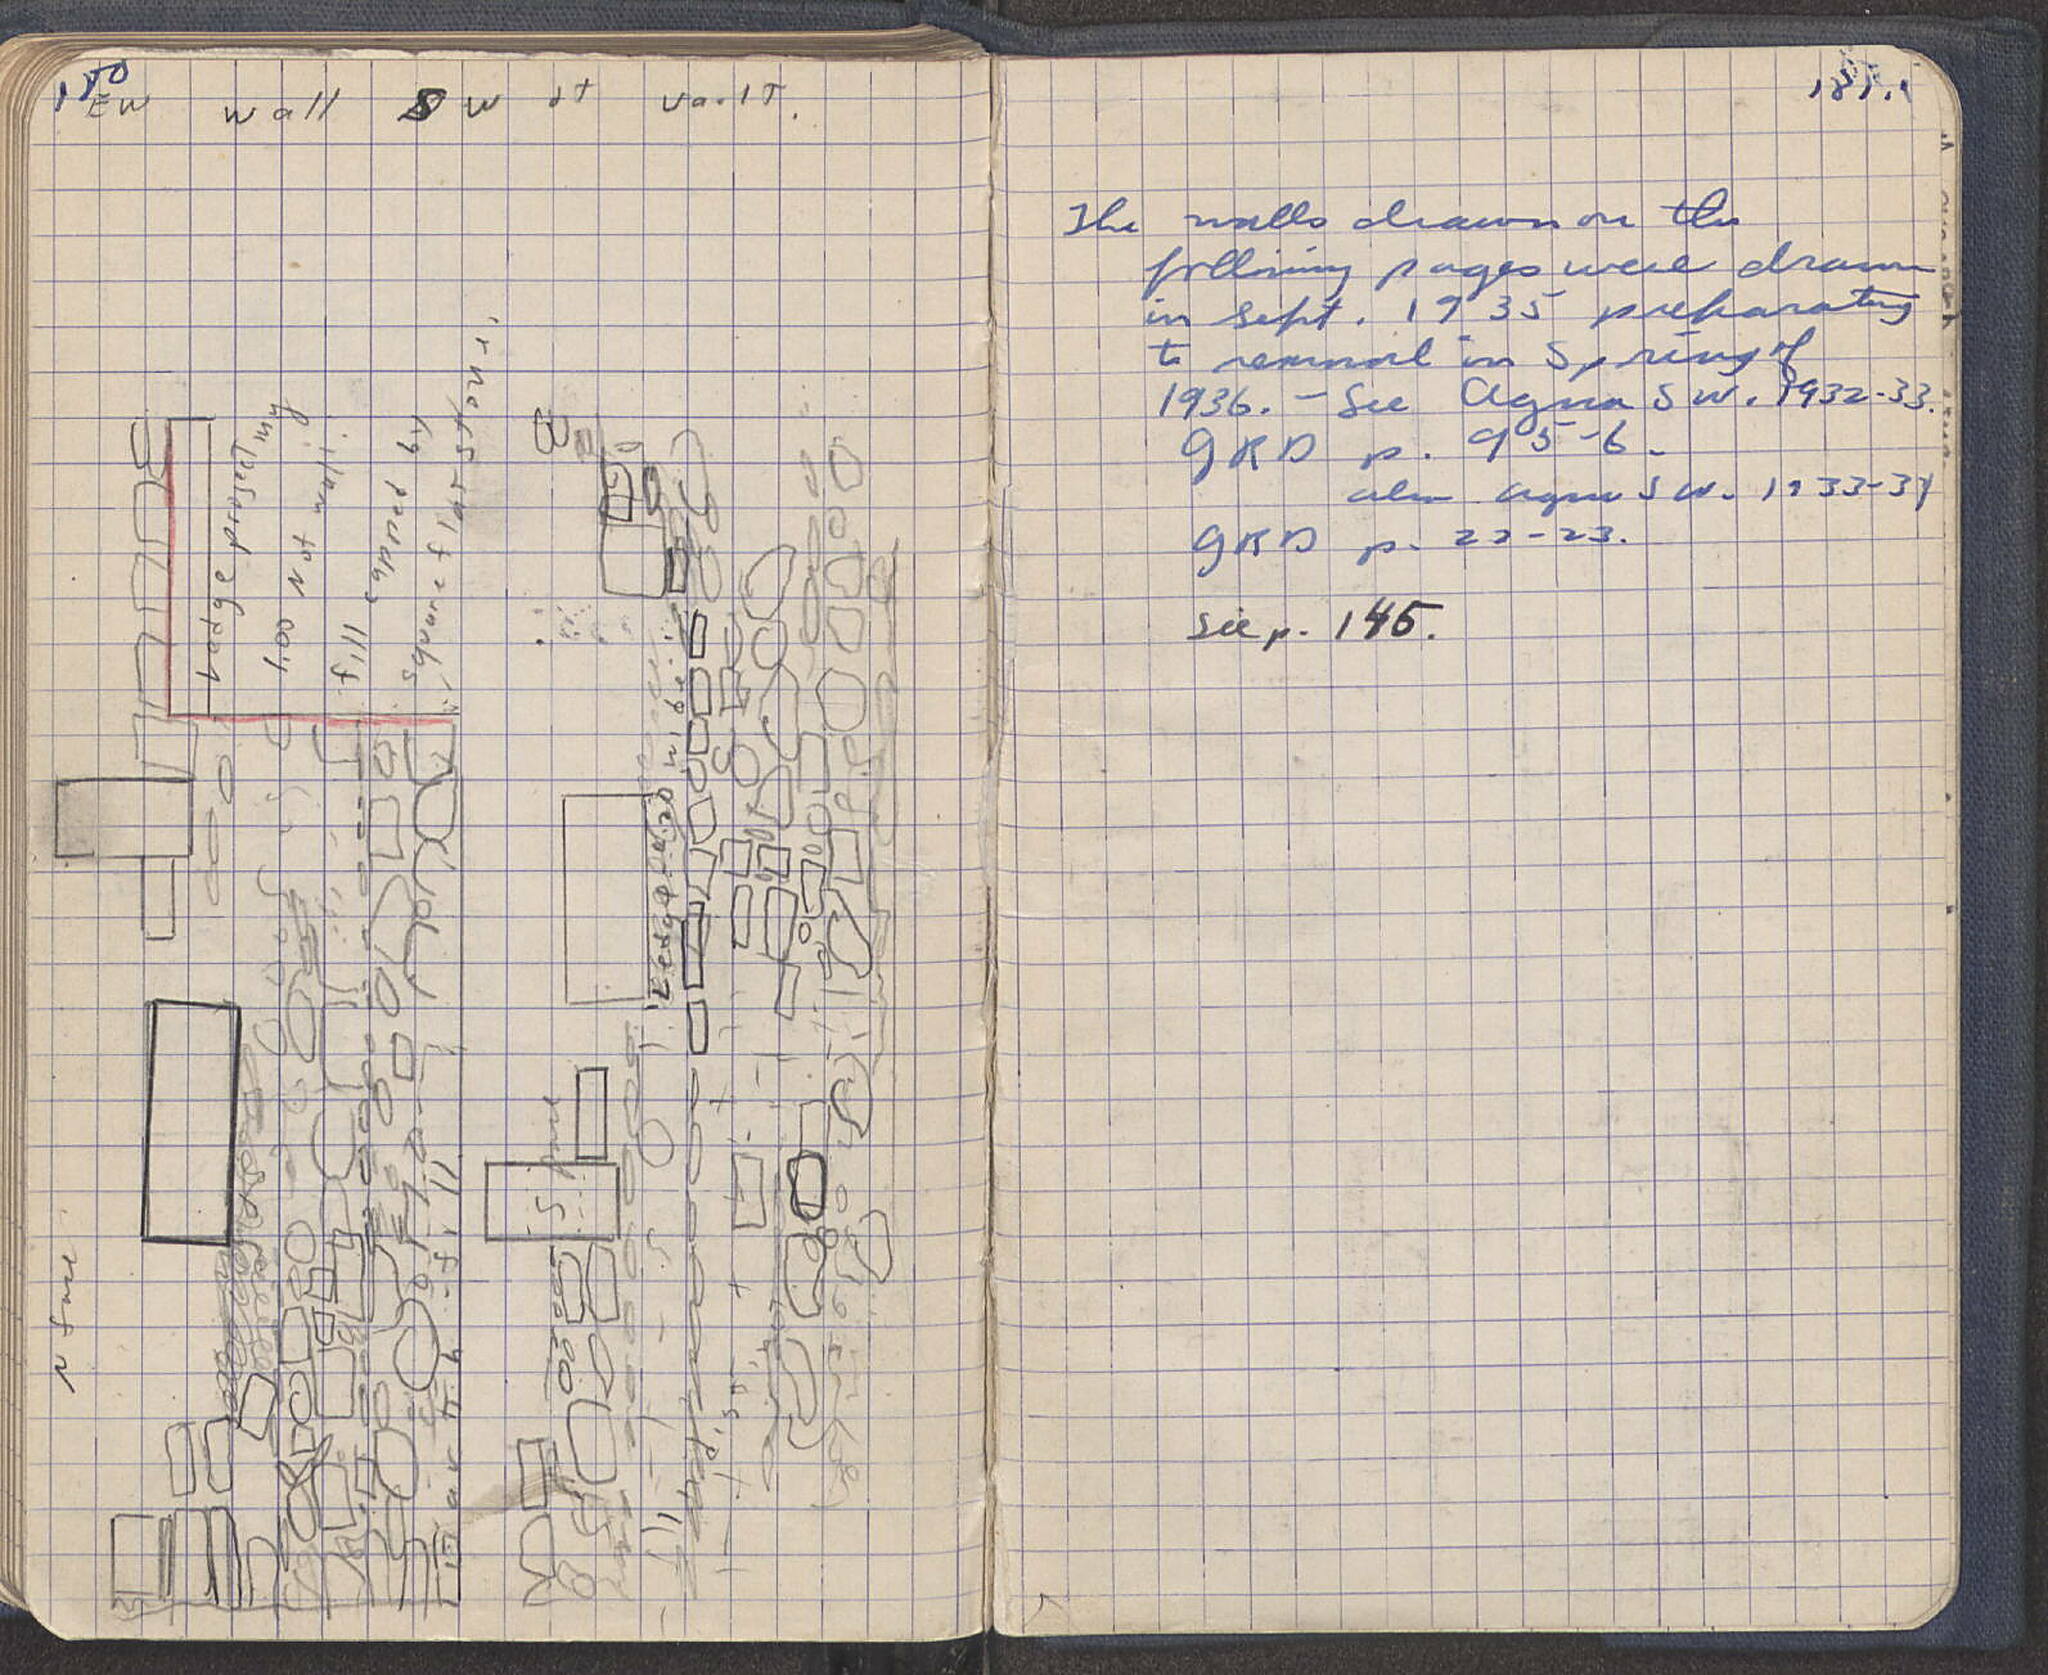 150
EW wall SW of vault.
Ledge projecting
1.00 Not wall.
fill capped by
square flat stone,
Ledge 0.20 wide
N face
S face
earth fill
fill
181.
The walls drawn on the
following pages were drawn
in Sept. 1935 preparatory
to removal in Spring of
1936. - See Agora SW. 1932-33.
GRD p. 95-6.
also Agora SW. 1933-34
GRD p. 22-23.
See p. 145.